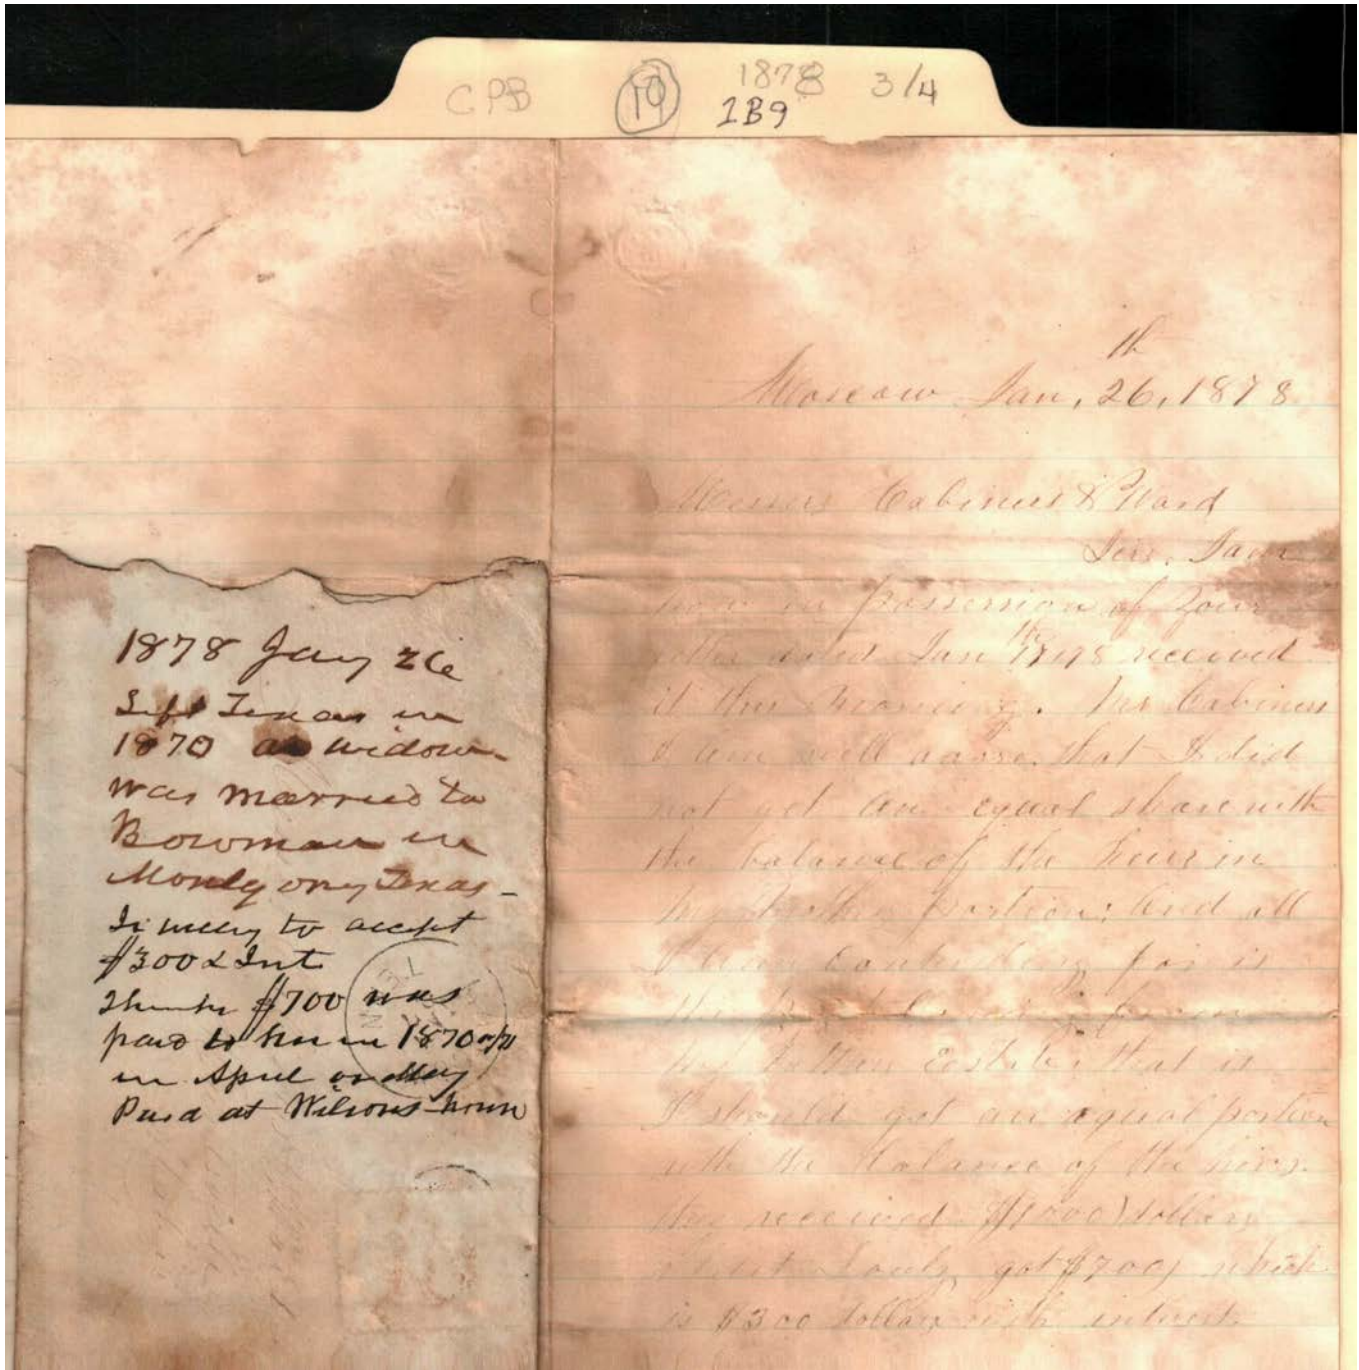 CPB 19 1878 3/4
1B9
1878 Jany 26
Left Texas in
1870 as widow
was married to
Bowman in
Montgomery Texas -
Is willing to accept
$300 & Int
Thinks $700 was
paid to her in 1870 or 71
in April or May
Paid at Wilsons house
Moscow Jan, 26th, 1878
Messrs Cabiness & Ward
Sirs, I am
now in possession of your
letter dated Jan received
it this morning. Mr Cabiness
I am well aware that I did
not get an equal share with
the balance of the heirs in
my portion; and all
I am contending for is
my Estate that is
I should get an equal portion
with the balance of the heirs.
they received $1000) dollars
I only got $700) which
is $300 dollars with interest